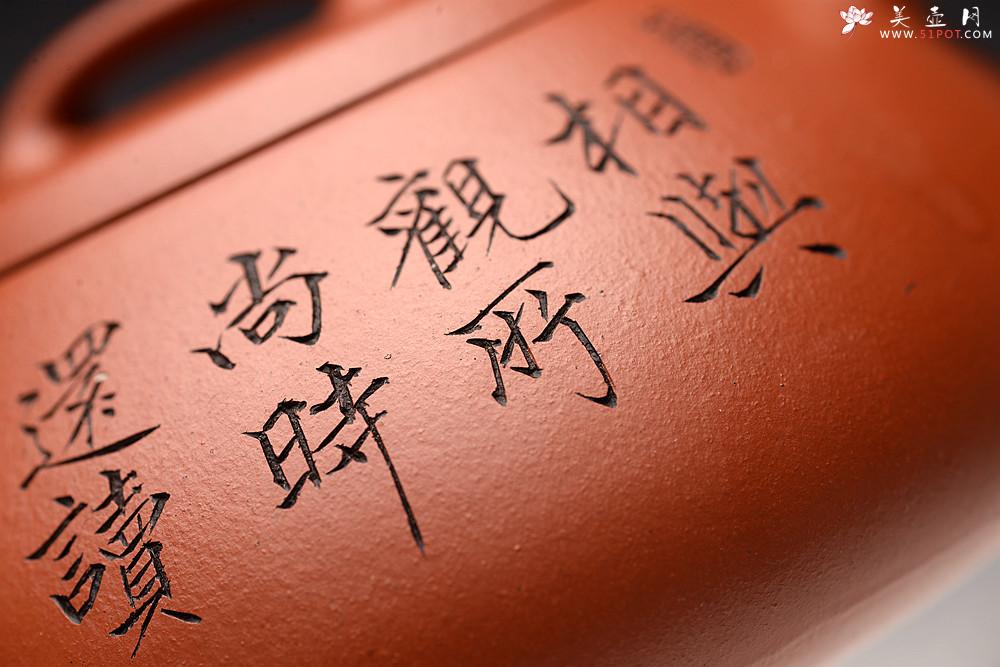 相與
觀所
尚時
還讀
美壶网
WWW.51POT.COM